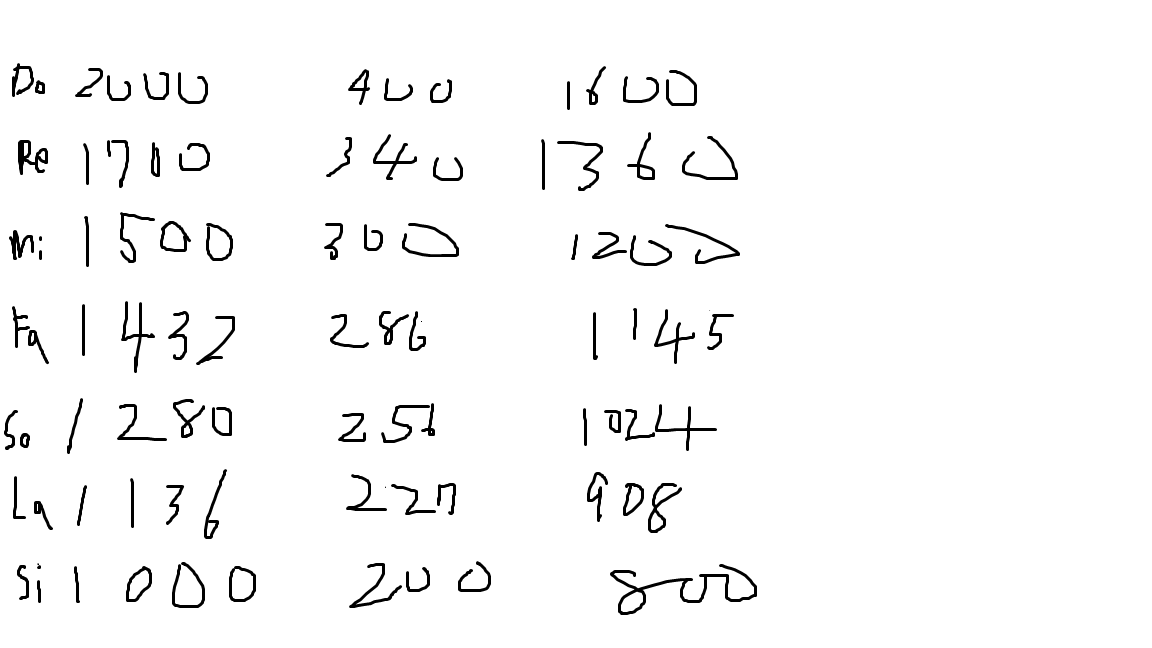 Do 2000 400 1600
Re 1710 340 1360
Mi 1500 300 1200
Fa 1432 286 1145
So 1280 256 1024
La 1136 227 908
Si 1000 200 800